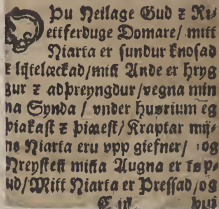 Þu Heilage Gud ꝛ Rie
ettferduge Domare/ mitt
Hiarta er sundur knosad
ꝛ lijtelæckad/mitt Ande er hryg
gur ꝛ adþreyngdur/vegna min
na Synda / vnder huørium eg
þiakast ꝛ þiæest/ Kraptar mijn
ner Hiarta eru vpp giefner/ og
Hreysteᛁ miña Augna er tøp
ud/Mitt Hiarta er Pressad/og
C ij